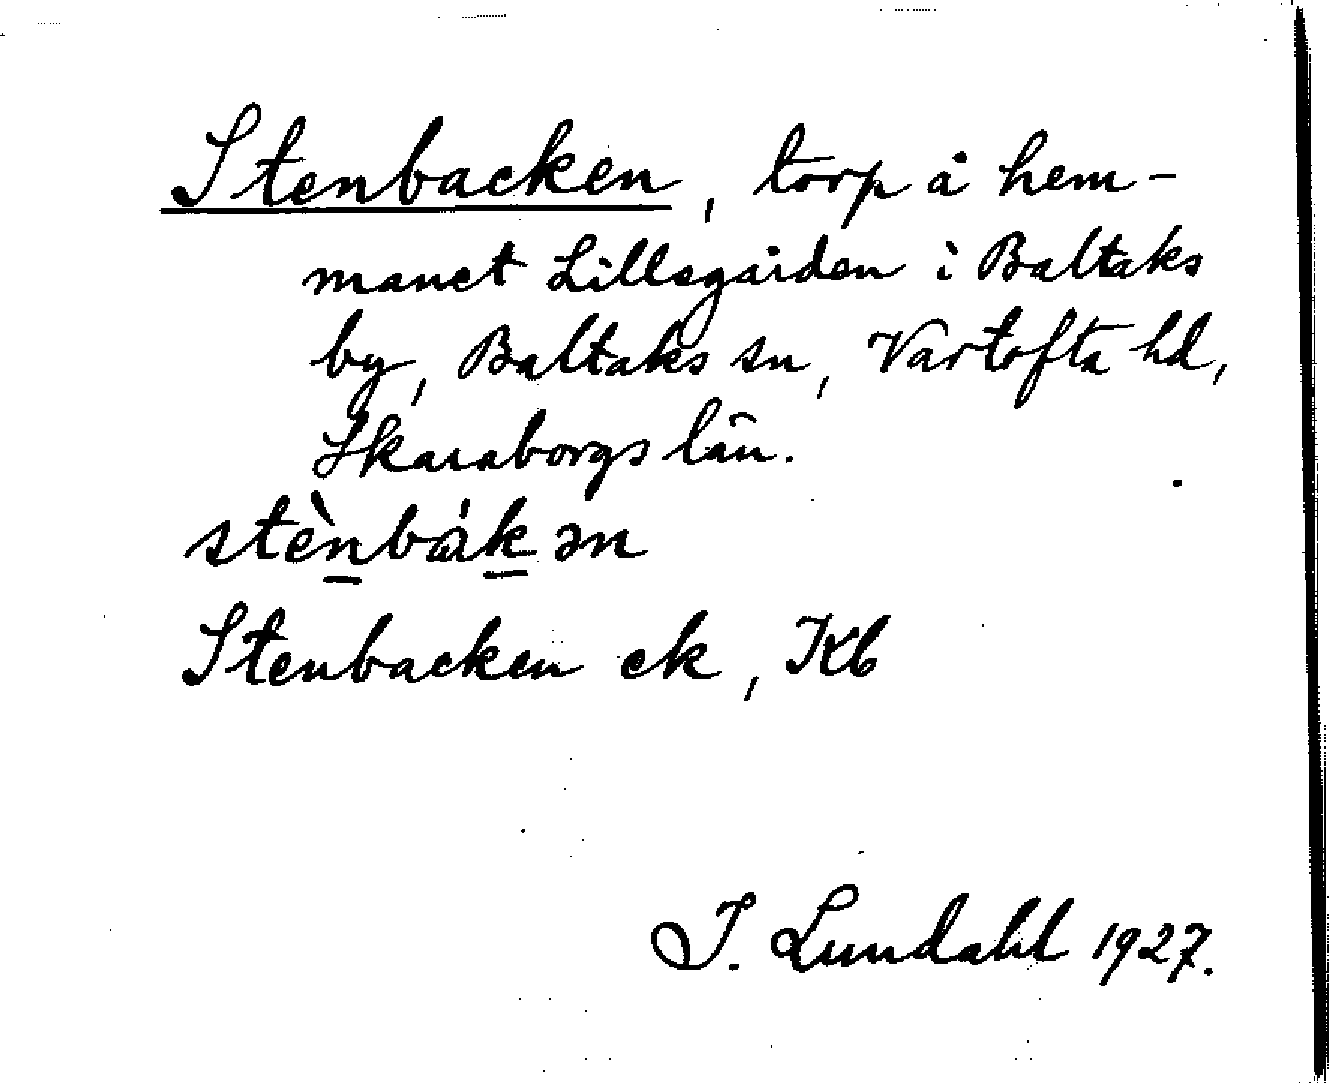 Stenbacken, torp å hem-
manet Lillegården i Baltaks
by, Baltaks sn, Vartofta hd,
Skaraborgs län.
stènbák ən
Stenbacken ek, JKb
I. Lundahl 1927.